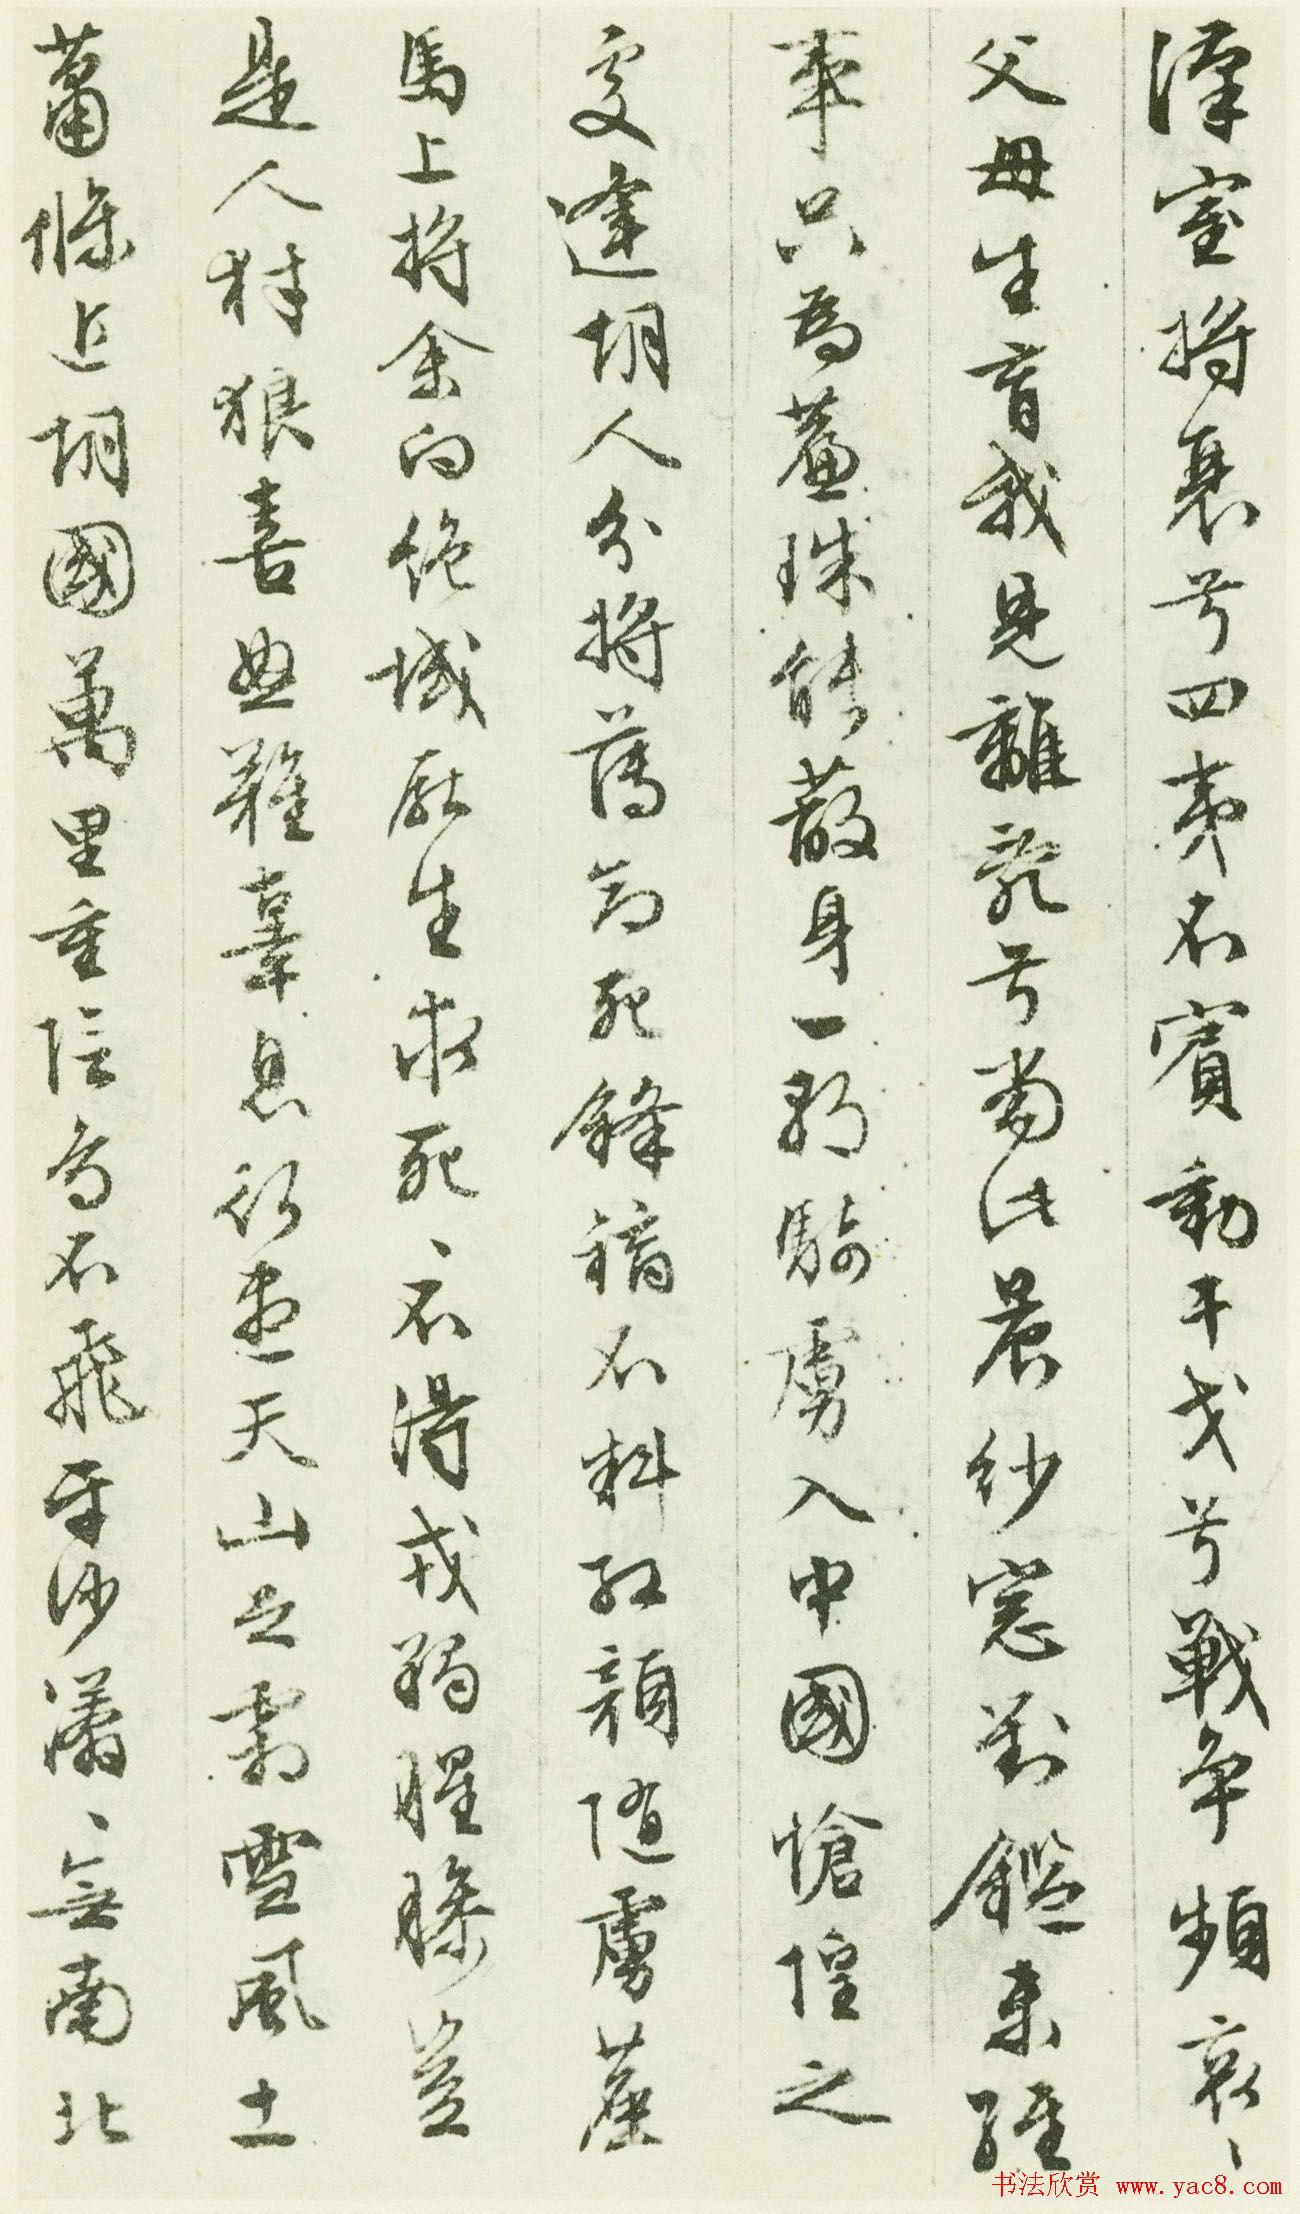 漢室將衰兮四夷不賓動干戈兮戰爭頻哀〻
父母生育我見離亂兮當此晨紗窓對鑑未經
事只為簾珠能蔽身一朝騎虜入中國愴惶之
處逢胡人分將薄命死鋒鏑不料紅顏隨虜塵
馬上將余向絕域厭生求死〻不得戎羯腥膻豈
是人豺狼喜怒難辜息行盡天山足霜雪風土
蕭條近胡國萬里重陰鳥不飛平沙〻無南北
书法欣赏 www.yac8.com